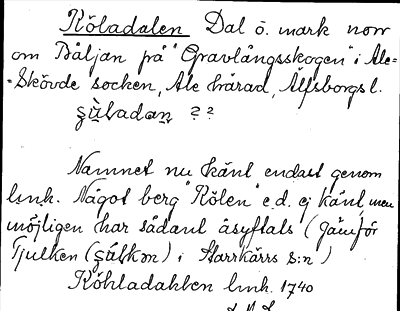 Köladalen Dal o. mark norr
om Båljan på "Gravlångsskogen" i Ale-
-Skövde socken, Ale härad, Älfsborgs l.
??
Namnet nu känt endast genom
lmk. Något berg "Kölen" e.d. ej känt, men
möjligen har sådant åsyftats (jämför
Tjulken i Starrkärrs s:n)
Köhladahlen lmk. 1740